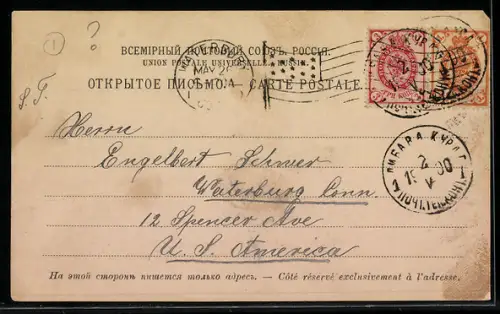 ?
1
ВСЕМІРНЫЙ ПОЧТОВЫЙ СОЮЗЪ. РОССІЯ.
UNION POSTALE UNIVERSELLE. RUSSIE.
ОТКРЫТОЕ ПИСЬМО. — CARTE POSTALE.
MAY 2
Herrn
Engelbert
Waterburg Conn.
12 Spencer Ave
U. S. America
ЛИБАВА КУРЛ. Г.
2
19 00
V
ПОЧТ. ТЕЛ. КОНТ.
На этой сторонѣ пишется только адресъ. — Côté réservé exclusivement à l'adresse.